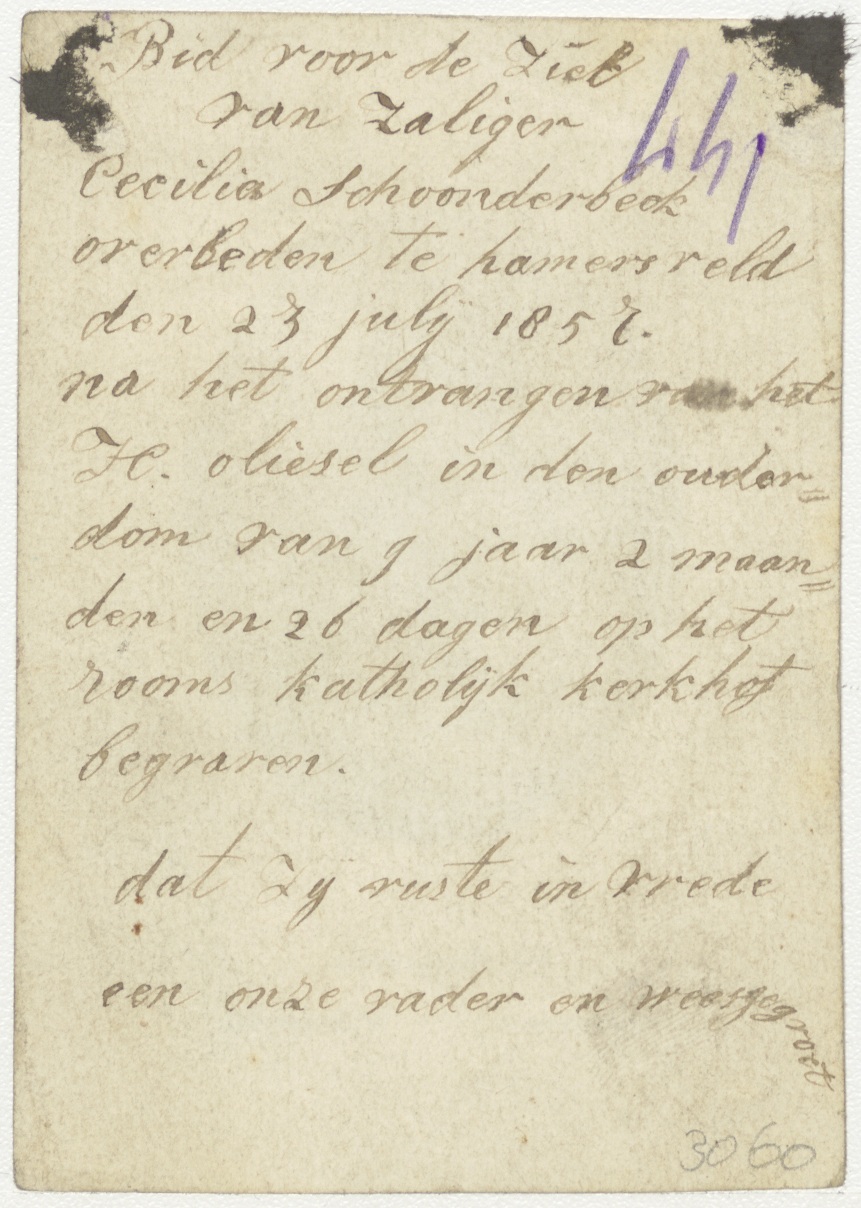 Bid voor de Ziel
van Zaliger
Cecilia Schoonderbeek
overleden te hamersveld
den 23 july 1857.
na het ontvangen van het
H. oliesel in den ouder=
dom van 9 jaar 2 maan=
den en 26 dagen op het
rooms katholijk kerkhof
begraven.
dat Zy ruste in vrede
een onze vader en weesgegroet
3060